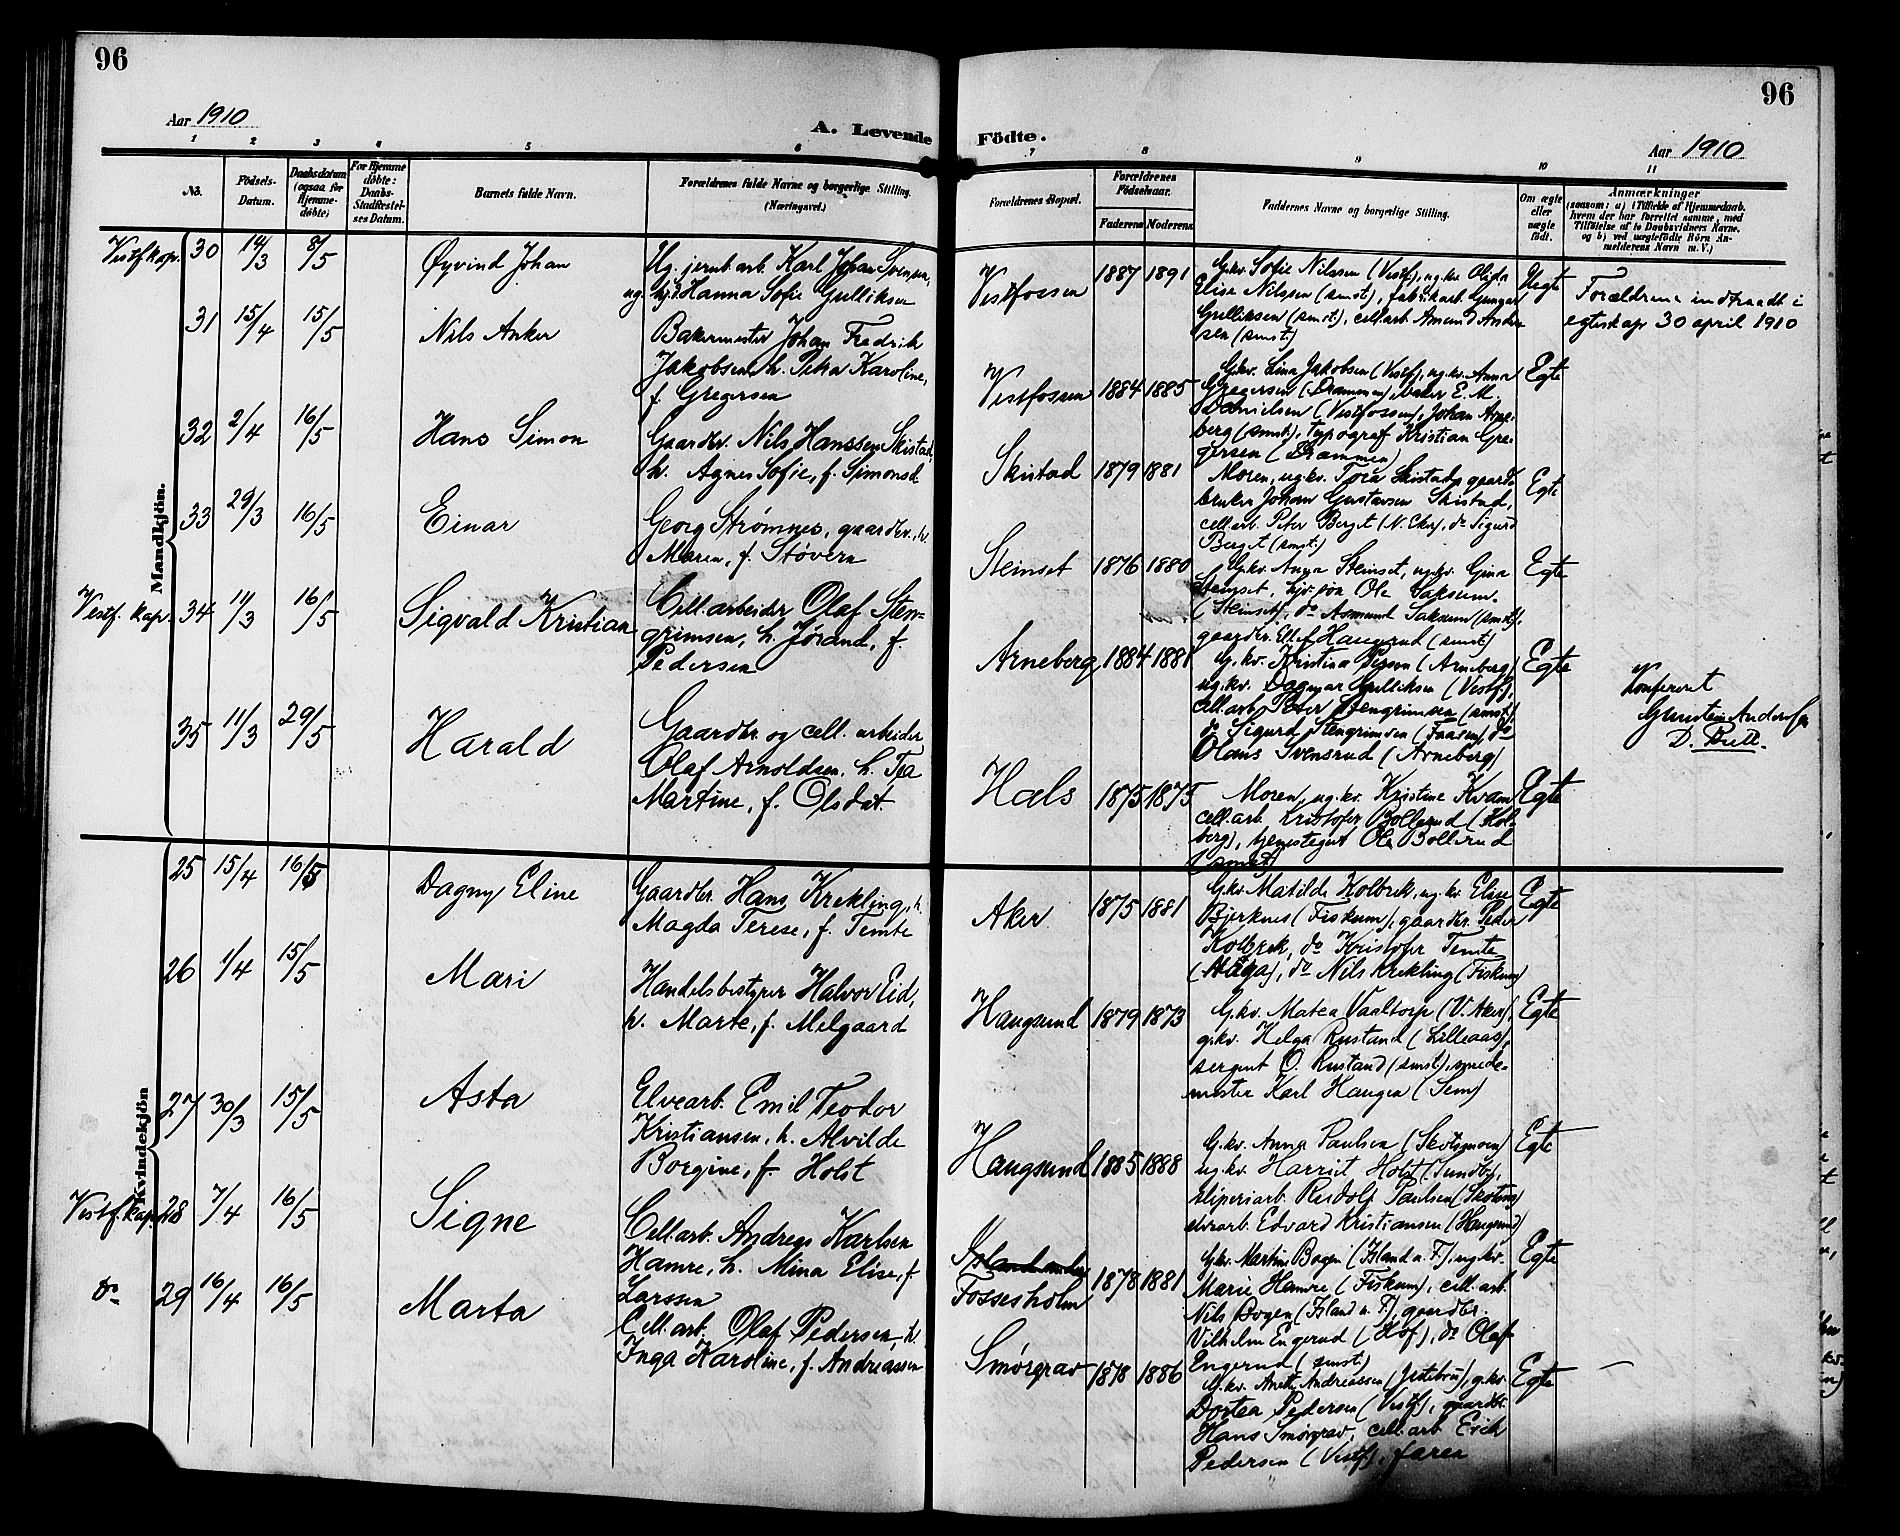 96
96
Aar 1910
A. Levende
Födte.
Aar 1910
1 2 3 4 5 6 7 8 9 10 11
No.
Födsels-
Datum.
Daabsdatum
(ogsaa for
Hjemme-
døbte)
For Hjemme
døbte:
Daabs-
Stadfæstel-
ses Datum.
Barnets fulde Navn.
Forældrenes fulde Navne og borgerlige Stilling.
(Næringsvei.)
Forældrenes Bopæl.
Forældrenes
Födselsaar.
Faderens
Moderens
Faddernes Navne og borgerlige Stilling.
Om ægte
eller
uægte
födt.
Anmærkninger
(saasom: a) i Tilfælde af Hjemmedaab,
hvem der har forrettet samme, med
Tilføielse af to Daabsvidners Navne,
og b) ved uægtefødte Börn An-
melderens Navn m. V.)
Mandkjön.
Vestf. kap. 30 14/3 8/5 Øyvind Johan
Ug. jernb.arb. Karl Johan Svensen,
ug. Hanna Sofie Gulliksen
Vestfossen 1887 1891
G.kv. Sofie Nilssen (Vestf), ug.kv. Olida
Elise Nilssen (smst), fabrikarb. Ljungar
Gulliksen (smst), cell.arb. Amund Ander
sen (smst)
Uegte
Forældrene indtraadt i
egteskap 30 april 1910
31 15/4 15/5 Nils Anker
Bakermester Johan Fredrik
Jakobsen, h. Petra Karoline,
f. Gregersen
Vestfossen 1884 1885
G.kv. Lina Jakobsen (Vestf), ug.kv. Anna
Gregersen (Drammen), baker E. M.
Danielsen (Vestfossen), Johan Arne-
berg (smst), typograf Kristian Gre-
gersen (Drammen)
Egte
32 2/4 16/5 Hans Simon
Gaardbr. Nils Hanssen Skistad,
h. Agnes Sofie, f. Simonsd
Skistad 1879 1881
Moren, ug.kv. Tora Skistad, gaard
bruker Johan Gustavsen Skistad,
cell.arb. Peter Berget (N. Eker), do Sigurd
Berget (smst)
Egte
33 29/3 16/5 Einar
Georg Strømnes, gaardbr., h.
Maren, f. Støvern
Steinset 1876 1880
G.kv. Anna Steinset, ug.kv. Gina
Steinset, Ole Saksum
(Steinset), do Asmund Saksum (smst),
gaardbr. Haugerud (smst)
Egte
Vestf. kap. 34 11/3 16/5 Sigvald Kristian
Cell.arbeider Olaf Sten-
grimsen, h. Jørand, f.
Pedersen
Arneberg 1884 1881
G.kv. Kristina (Arneberg)
ug.kv. Dagmar Gulliksen (Vestf),
cell.arb. Peter Stengrimsen (smst),
do Sigurd Stengrimsen do
Olaus Svensrud (Arneberg)
Egte
Konfereret
35 11/3 29/5 Harald
Gaardbr og cell. arbeider
Olaf Arnoldsen, h. Tea
Martine, f. Olsdat
Hals 1875 1875
Moren, ug.kv. Kristine Kvam
cell.arb. Kristofer Bollerud (Hol-
berg), tjenestegut Ole Bollerud
(smst)
Egte
Kvindekjön
25 15/4 16/5 Dagny Eline
Gaardbr. Hans Krekling, h.
Magda Terese, f. Temte
Aker 1875 1881
G.kv. Matilde Kolbrek, ug.kv. Elise
Bjerknes (Fiskum), gaardbr. Peder
Kolbrek, do Kristofer Temte
(Haga), do Nils Krekling (Fiskum)
Egte
26 1/4 15/5 Mari
Handelsbestyrer Halvor Eid,
h. Marte, f. Melgaard
Haugsund 1879 1873
G.kv. Matea Vaaltorp (V. Aker),
g.kv. Helga Rustand (Lilleaas),
sergent O. Rustand (smst), smede-
mester Karl Haugen (Sem)
Egte
27 30/3 15/5 Asta
Elvearb. Emil Teodor
Kristiansen, h. Alvilde
Borgine, f. Holst
Haugsund 1885 1888
G.kv. Anna Paulsen (Skotsmoen)
ug.kv. Harriet Holst (Sundby),
sliperiarb. Rudolf Paulsen (Skotsm)
elvearb. Edvard Kristiansen (Haugsund)
Egte
Vestf. kap. 28 7/4 16/5 Signe
Cell.arb. Andreas Karlsen
Hamre, h. Mina Elise, f.
Larssen
Fossesholm 1878 1881
G.kv. Martine Bogen (Øsland u. F.), ug.kv.
Marie Hamre (Fiskum), cell.arb.
Nils Bogen (Øsland u. F), gaardbr.
Vilhelm Engerud (Hof), do Olaf
Engerud (smst)
Egte
do 29 16/4 16/5 Marta
Cell.arb. Olaf Pedersen, h.
Inga Karoline, f. Andreassen
Smørgrav 1878 1886
G.kv. Anette Andreassen, g.kv.
Dortea Pedersen (Vestf), gaardbr.
Hans Smørgrav, cell.arb. Erik
Pedersen (Vestf), faren
Egte